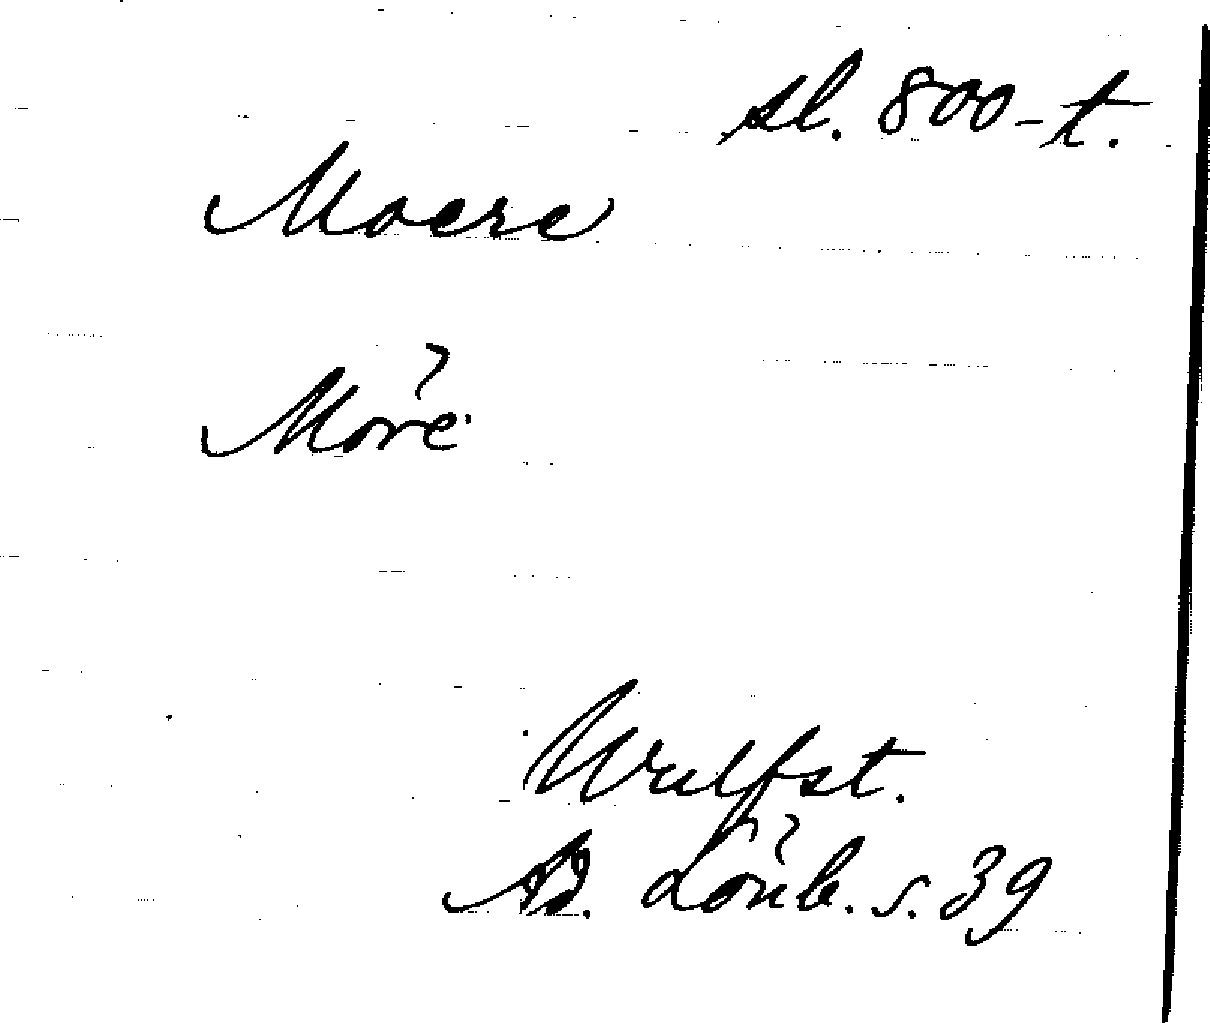 sl. 800-t.
Moere
Möre
Wulfst.
Lönb. s. 39